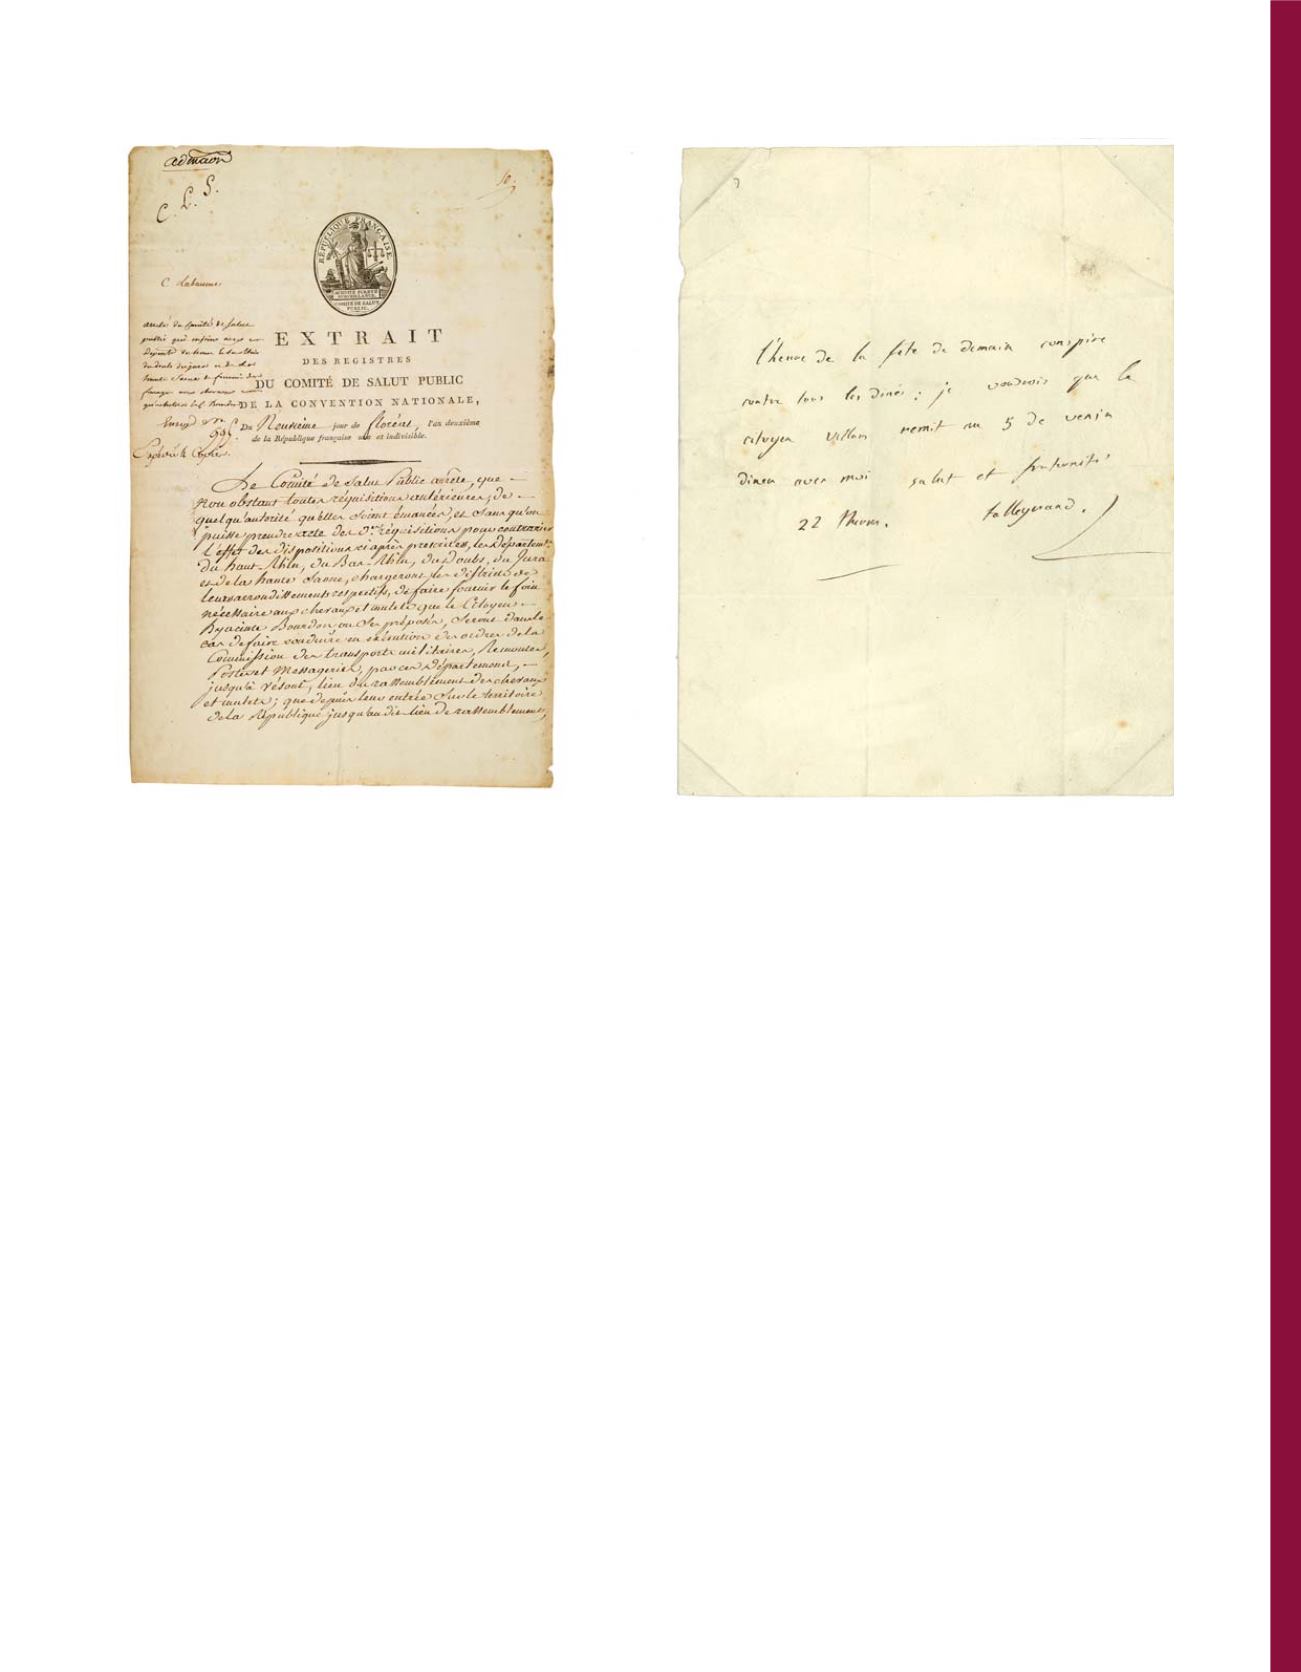 admaon
C. L. S.
10.
RÉPUBLIQUE FRANÇAISE
ACTIVITÉ PURETÉ
SURVEILLANCE.
COMITÉ DE SALUT
PUBLIC.
C Labaume
arrêté du Comité de Salut
public qui
EXTRAIT
DES REGISTRES
DU COMITÉ DE SALUT PUBLIC
DE LA CONVENTION NATIONALE,
Du Neuvieme jour de floréal, l'an deuxième
de la République française une et indivisible.
Le Comité de Salut Public arrête, que
Nonobstant toutes réquisitions antérieures, de
quelqu'autorité qu'elles soient émanées, et sans qu'on
puisse prendre texte des d.tes réquisitions pour contrarier
l'effet des dispositions ci après prescrites, les départem.ts
du haut-Rhin, du Bas-Rhin, du Doubs, du Jura
et de la haute Saone, chargeront les districts de
leurs arrondissements respectifs, de faire fournir le foin
nécessaire aux chevaux et mulets que le Citoyen
Hyacinte Bourdon ou ses préposés, seront dans le
cas de faire conduire en exécution des ordres de la
Commission des transports militaires, Remontes,
Postes et Messageries, par ces départements,
jusqu'à Vésoul, lieu du rassemblement des chevaux
et mulets; que depuis leur entrée sur le territoire
de la République jusqu'au dit lieu de rassemblement,
l'heure de la fete de demain conspire
contre tous les dinés : je voudrois que le
citoyen Villars remit au 5 de venir
diner avec moi salut et fraternité
22 Therm. talleyrand.